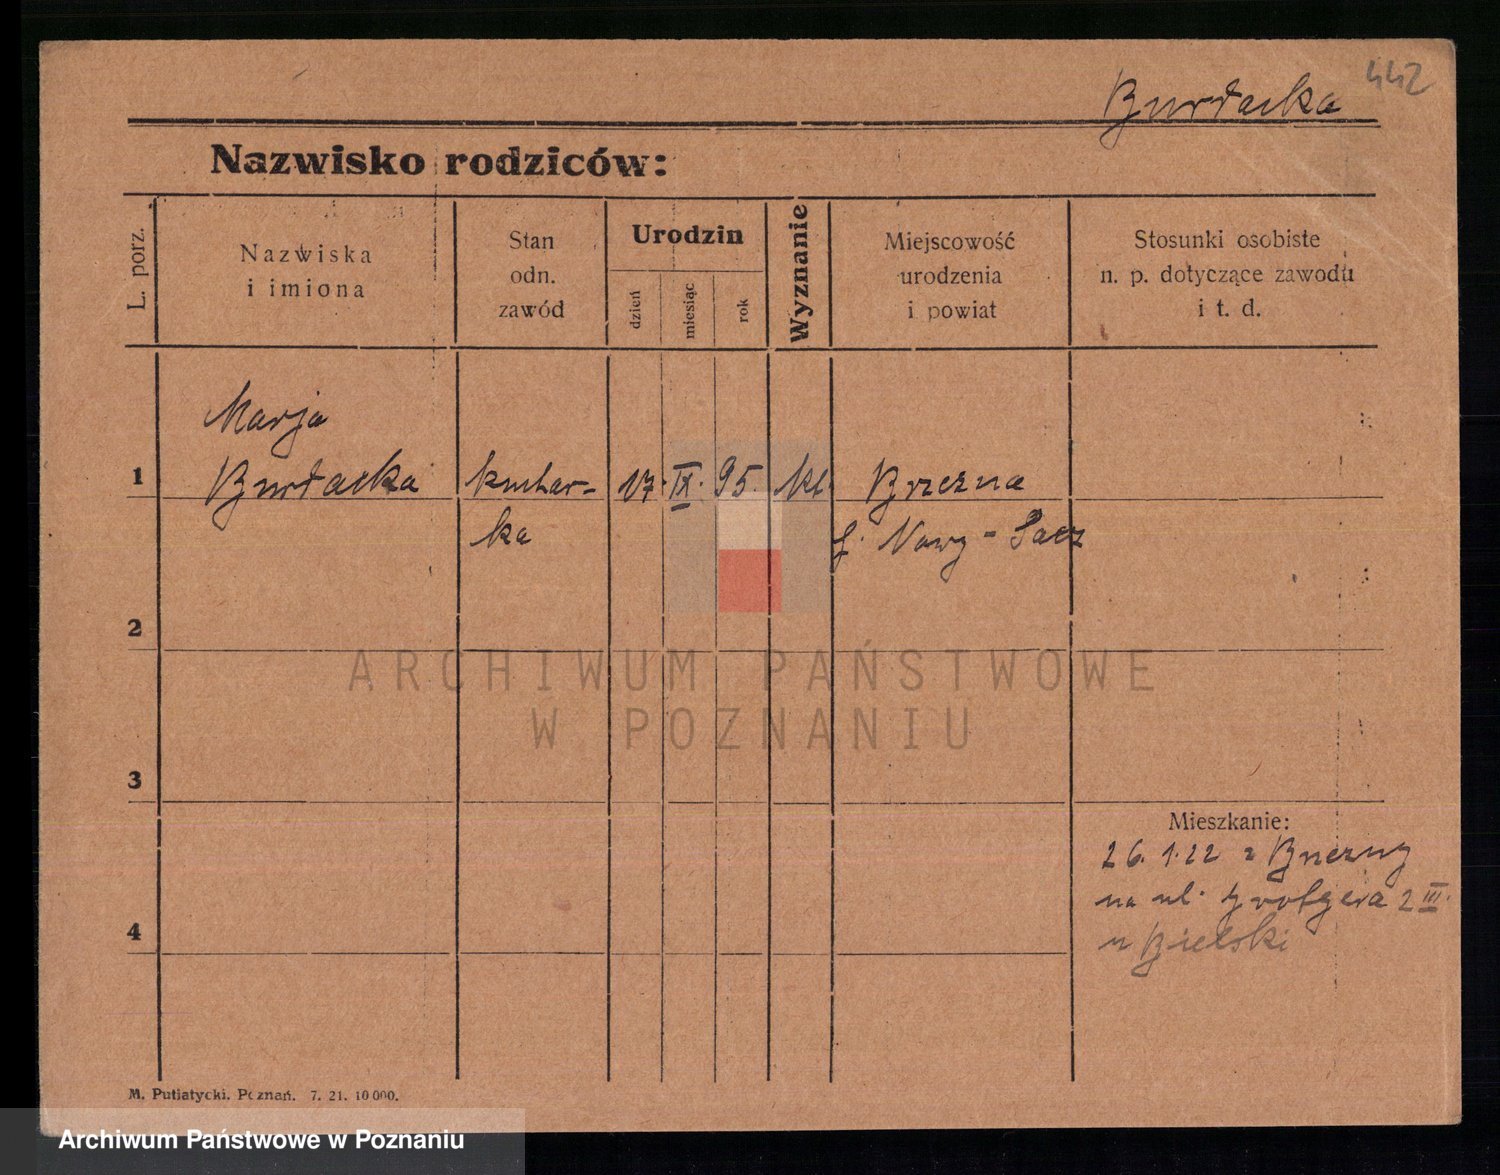 442
Burdacka
Nazwisko rodziców:
L. porz.
Nazwiska
i imiona
Stan
odn.
zawód
Urodzin
dzień
miesiąc
rok
Wyznanie
Miejscowość
urodzenia
i powiat
Stosunki osobiste
n. p. dotyczące zawodu
i t. d.
Marja
1 Burdacka kuchar- 17. IX. 95. kt. Brzezna
ka Nowy-Sącz
2
3
4
Mieszkanie:
26.1.22 z Brzezny
na ul. 2 III.
u Bielski
M. Putiatycki. Poznań. 7. 21. 10 000.
ARCHIWUM PAŃSTWOWE
W POZNANIU
Archiwum Państwowe w Poznaniu